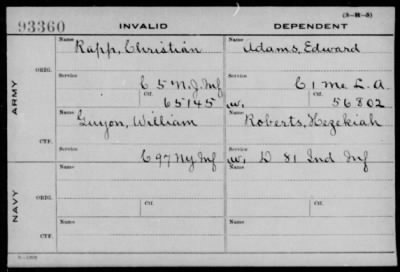 (3-H-3)
93360 INVALID DEPENDENT
ARMY
ORIG.
Name Rapp, Christian
Service C 5 N.J. Inf
Ctf. 65145
Name Adams, Edward
Service C 1 Me L. A.
w. Ctf. 56802
CTF.
Name Guyon, William
Service C 97 Ny Inf
Name Roberts, Hezekiah
Service w. D 81 Ind Inf
NAVY
ORIG.
Name
Service
Ctf.
Name
Service
Ctf.
CTF.
Name
Name